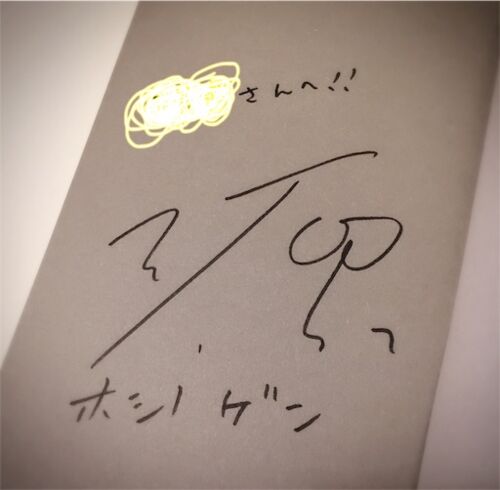 さんへ!!
源
ホシノ ゲン